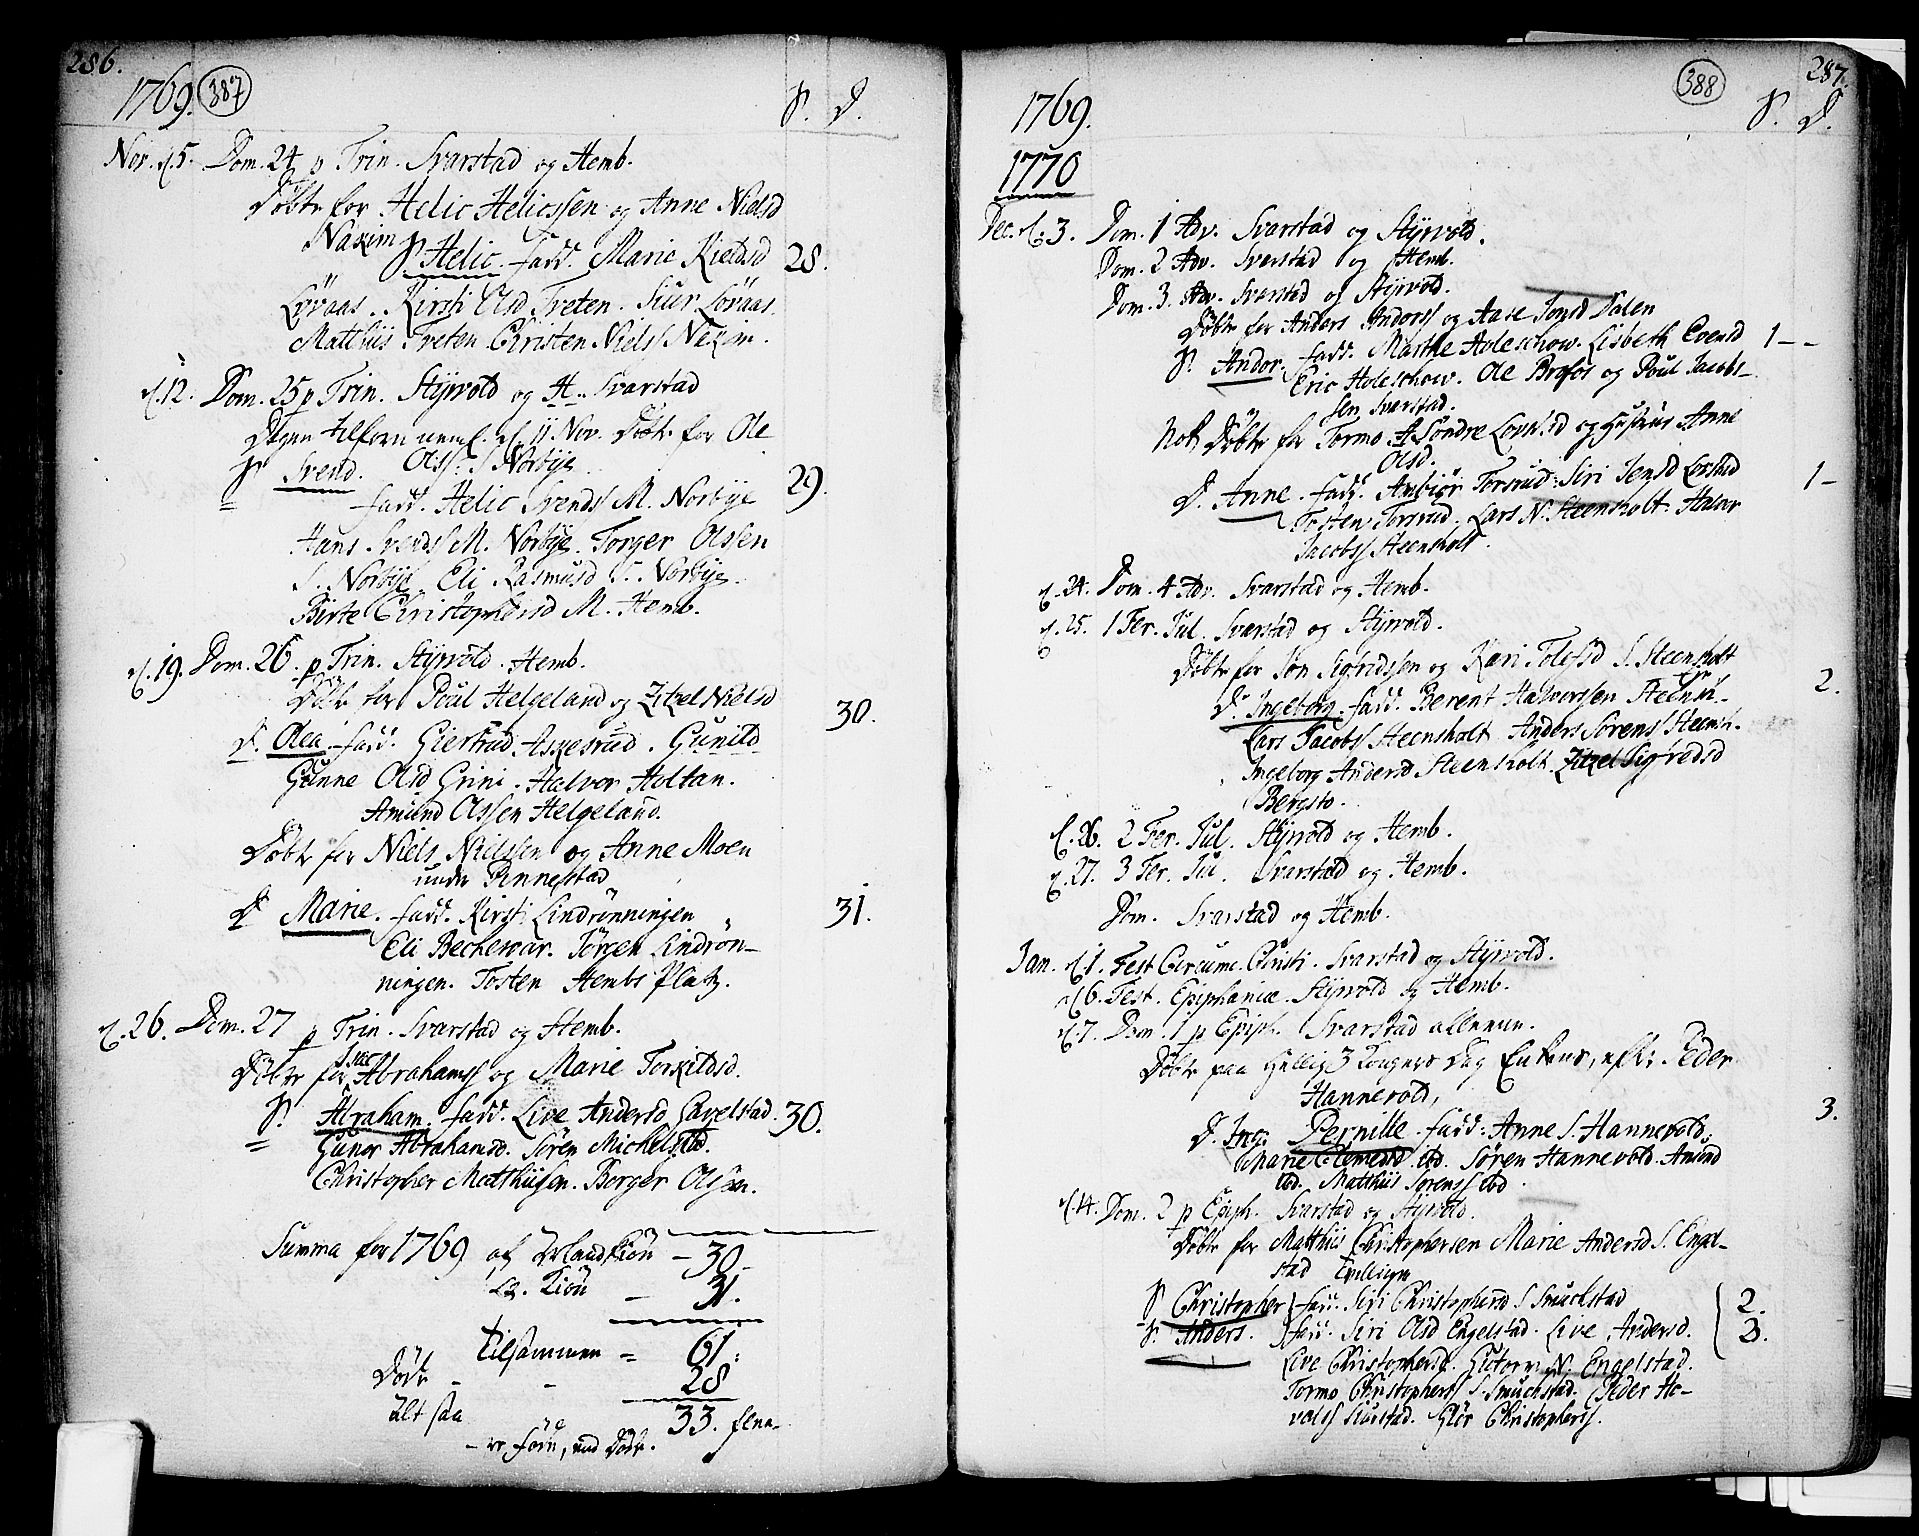 286.
1769. 387
S. D.
Nov. d. 5. Dom. 24 p Trin. Svarstad og Hemb.
Döbte for Helic Helicssen og Anne Nielsd
Naxim
S. Helic. fadd. Marie Kieldsd 28.
Lövaas. Kirsti Olsd Treten. Siur Lövaas.
Matthiis Treten Christen Niels Naxim.
d. 12. Dom. 25 p Trin. Styrvold og H. Svarstad
Dagen tilforn neml. d. 11 Nov. Döbte for Ole
Olss. S Norbÿe
S Svend. 29.
fadd. Helic Svends M. Norbÿe
Hans Svends M. Norbÿe. Torger Olssen
S. Norbÿe Eli Rasmusd S. Norbÿe.
Birte Christophersd M. Hemb.
d. 19. Dom. 26. p Trin. Styrvold. Hemb.
Döbte for Poul Helgeland og Zitzel Nielsd
D. Olea fadd. Giertrud Askesrud. Gunild 30.
Gunne Olsd Grini. Halvor Holtan.
Amund Olssen Helgeland.
Döbte for Niels Nielssen og Anne Moen
under Pennestad
D Marie. fadd. Kirsti Lindrönningen 31.
Eli Beckevar. Jörgen Lindrön-
ningen. Tosten Hembs Platz.
d. 26. Dom. 27 p Trin. Svarstad og Hemb.
Döbte for Isac Abrahams og Marie Torkildsd.
S. Abraham. fadd. Live Andersd Gavelstad. 30.
Gunor Abrahamsd. Sören Michelstad.
Christopher Matthiisen. Borger Olsen.
Summa for 1769 af Kiön - 30
Kiön - 31.
tilsammen = 61.
Döde - - 28
Alt saa 33. flee-
re föde, end Döde.
388 287.
1769. S. D.
1770
Dec. d. 3. Dom. 1 Adv. Svarstad og Styrvold.
Dom. 2 Adv. Svarstad og Hemb.
Dom. 3. Adv. Svarstad og Styrvold.
Döbte for Anders Anderss og Aase Dalen
S. Andor. fadd. Marthe Holeschow. Lisbeth Evensd 1 -
Eric Holeschow. Ole Brefos og Poul Jacobs-
sen Svarstad.
Nok Döbte for Tormo A Söndre og Hustrue Anne
Olsd.
D. Anne. fadd. Anbiör Torsrud. Siri Jensd 1 -
Tosten Torsrud. Lars N. Steensholt. Halvor
Jacobs Steensholt.
d. 24. Dom. 4 Adv. Svarstad og Hemb.
d. 25. 1 Fer. Jul. Svarstad og Styrvold.
Döbte for Jon Sigfridssen og Kari Tolefsd S. Steensholt
D. Ingeborg. fadd. Berent Halvorssen 2.
Lars Jacobs Steensholt Anders Sörens Steensh.
Ingeborg Andersd Steensholt Zitzel Sigfredsd
Bergsto.
d. 26. 2 Fer. Jul. Styrvold og Hemb.
d. 27. 3 Fer. Jul. Svarstad og Hemb.
Dom. Svarstad og Hemb.
Jan. d. 1. Fest Circumc. Christi. Svarstad og Styrvold.
d 6. Fest. Epiphaniæ. Styrvold og Hemb.
d. 7. Dom. 1 p Epiph. Svarstad allene.
Döbte paa Hellig 3 Kongers Dag Enkens, afl: Peder
Hannevold,
D. Pernille fadd: Anne S. Hannevold. 3.
Marie Clemedsd ibd. Sören Hannevold. Amund
ibd. Matthiis Sörenss ibd.
d. 14. Dom. 2 p Epiph. Svarstad og Styrvold.
Döbte for Matthiis Christophersen Marie Andersd S. Engel-
stad Tvillinger
S Christopher fadd. Siri Christophersd S Smuckstad 2.
S. Anders. fadd. Siri Olsd Engelstad. Live Andersd. 3.
Live Christophersd. Gutorm N. Engelstad.
Tormo Christophers S. Smuckstad. Peder Ho-
vals Siurstad. Christophers.